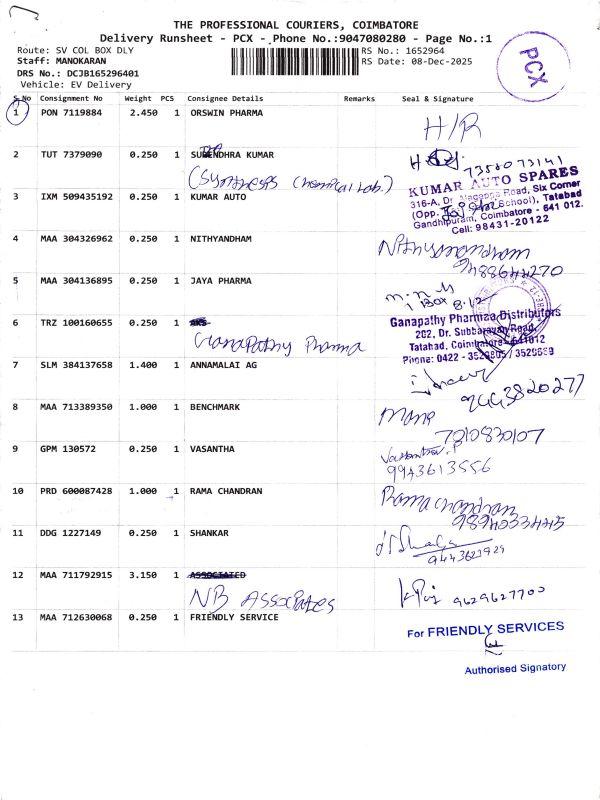 THE PROFESSIONAL COURIERS, COIMBATORE
Delivery Runsheet - PCX - Phone No.:9047080280 - Page No.:1
Route: SV COL BOX DLY
RS No.: 1652964
Staff: MANOKARAN
RS Date: 08-Dec-2025
DRS No.: DCJB165296401
Vehicle: EV Delivery
PCX
S.No Consignment No Weight PCS Consignee Details Remarks Seal & Signature
1 PON 7119884 2.450 1 ORSWIN PHARMA
H/R
2 TUT 7379090 0.250 1 SURENDHRA KUMAR
7358073141
(Synthesis Chemical Lab.)
3 IXM 509435192 0.250 1 KUMAR AUTO
KUMAR AUTO SPARES
316-A, Dr. Nagappa Road, Six Corner
(Opp. School), Tatabad
Gandhipuram, Coimbatore - 641 012.
Cell: 98431-20122
4 MAA 304326962 0.250 1 NITHYANDHAM
5 MAA 304136895 0.250 1 JAYA PHARMA
1 Box 8.12
6 TRZ 100160655 0.250 1
Ganapathy Pharma
Ganapathy Pharmaa Distributors
202, Dr. Subbarayan Road,
Tatabad, Coimbatore - 641012
Phone: 0422 - 3529805 / 3529559
7 SLM 384137658 1.400 1 ANNAMALAI AG
9443820277
8 MAA 713389350 1.000 1 BENCHMARK
Mano
7010830107
9 GPM 130572 0.250 1 VASANTHA
Vasantha. P
9943613556
10 PRD 600087428 1.000 1 RAMA CHANDRAN
Rama chandran
11 DDG 1227149 0.250 1 SHANKAR
12 MAA 711792915 3.150 1 ASSOCIATED
NB Associates
9629627700
13 MAA 712630068 0.250 1 FRIENDLY SERVICE
For FRIENDLY SERVICES
Authorised Signatory